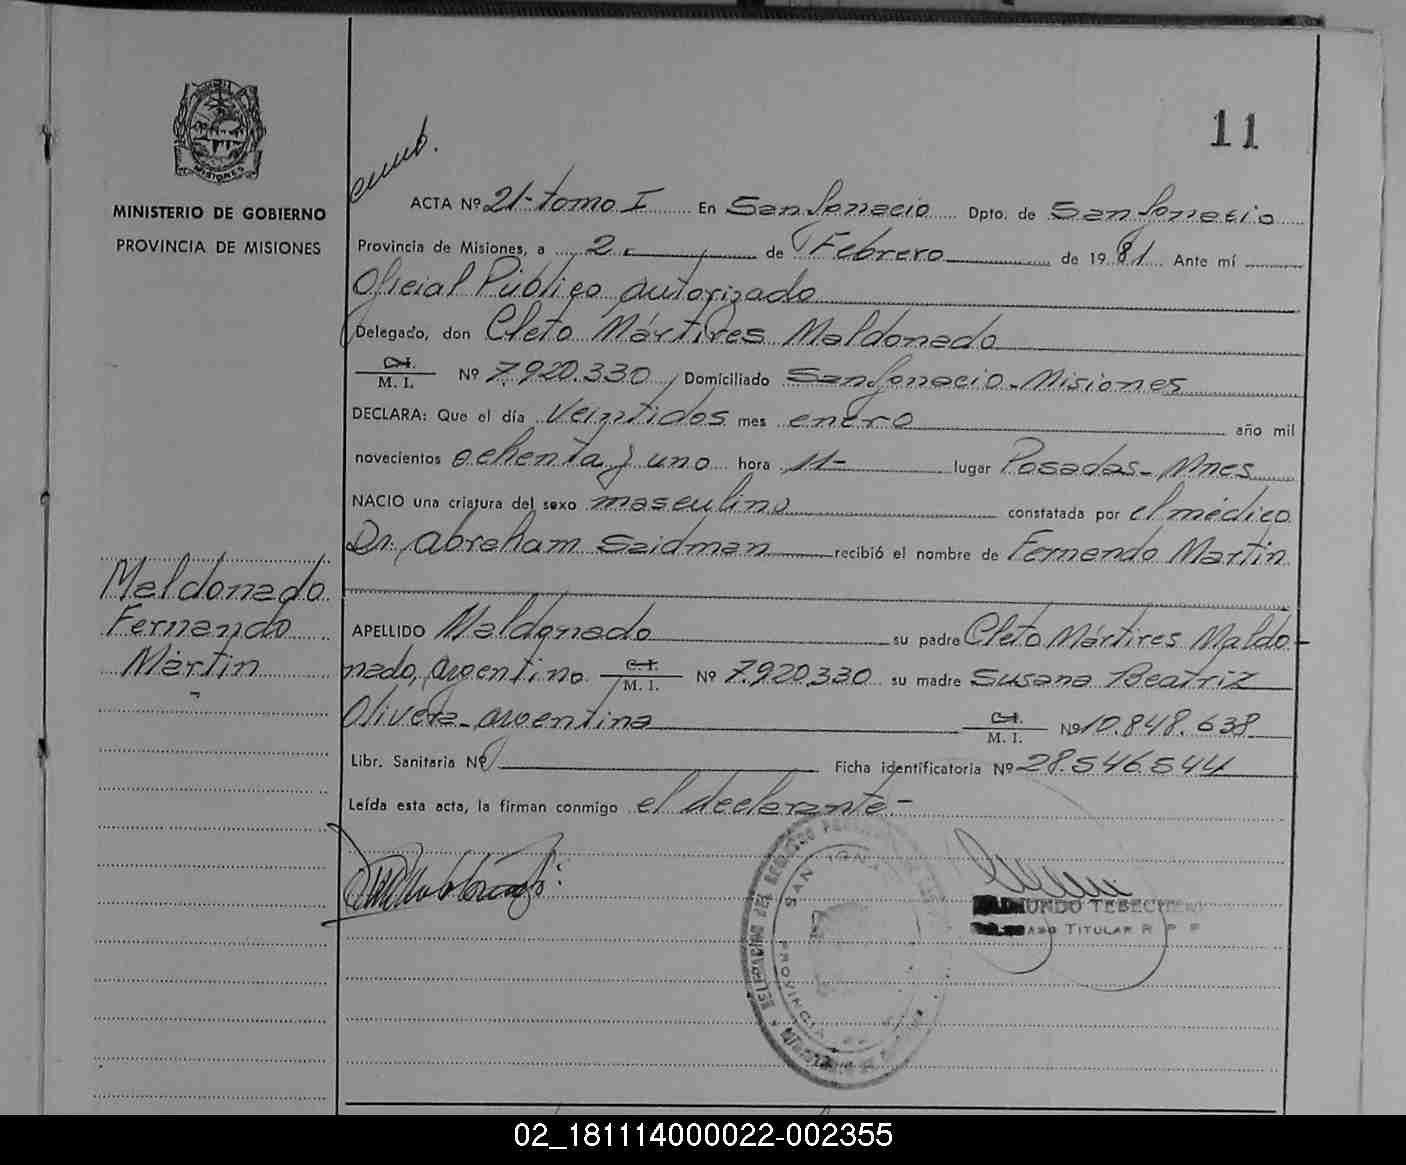 11
MISIONES
MINISTERIO DE GOBIERNO
PROVINCIA DE MISIONES
ACTA Nº 21- tomo I En San Ignacio Dpto. de San Ignacio
Provincia de Misiones, a 2 de Febrero de 1981 Ante mí
Oficial Público autorizado
Delegado, don Cleto Mártires Maldonado
C.I.
M. I. Nº 7.920.330 Domiciliado San Ignacio - Misiones
DECLARA: Que el día veintidos mes enero año mil
novecientos ochenta y uno hora 11- lugar Posadas - Mnes
NACIO una criatura del sexo masculino constatada por el médico
Dr. Abraham Saidman recibió el nombre de Fernando Martin
Maldonado
Fernando
Martin
APELLIDO Maldonado su padre Cleto Mártires Maldo-
nado, argentino C.I. M. I. Nº 7.920.330 su madre Susana Beatriz
Olivera - argentina C.I. M. I. Nº 10.848.638
Libr. Sanitaria Nº Ficha identificatoria Nº 28.546.544
Leída esta acta, la firman conmigo el declarante -
SAN IGNA
PROVINCIA
MUNDO TEBECH
TITULAR R P P
02_181114000022-002355